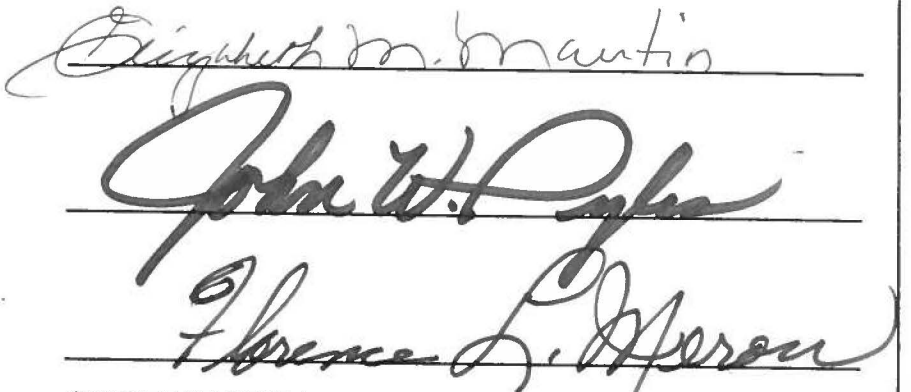 Elizabeth M. Martin
John W. Pyles
Florence L. Meron